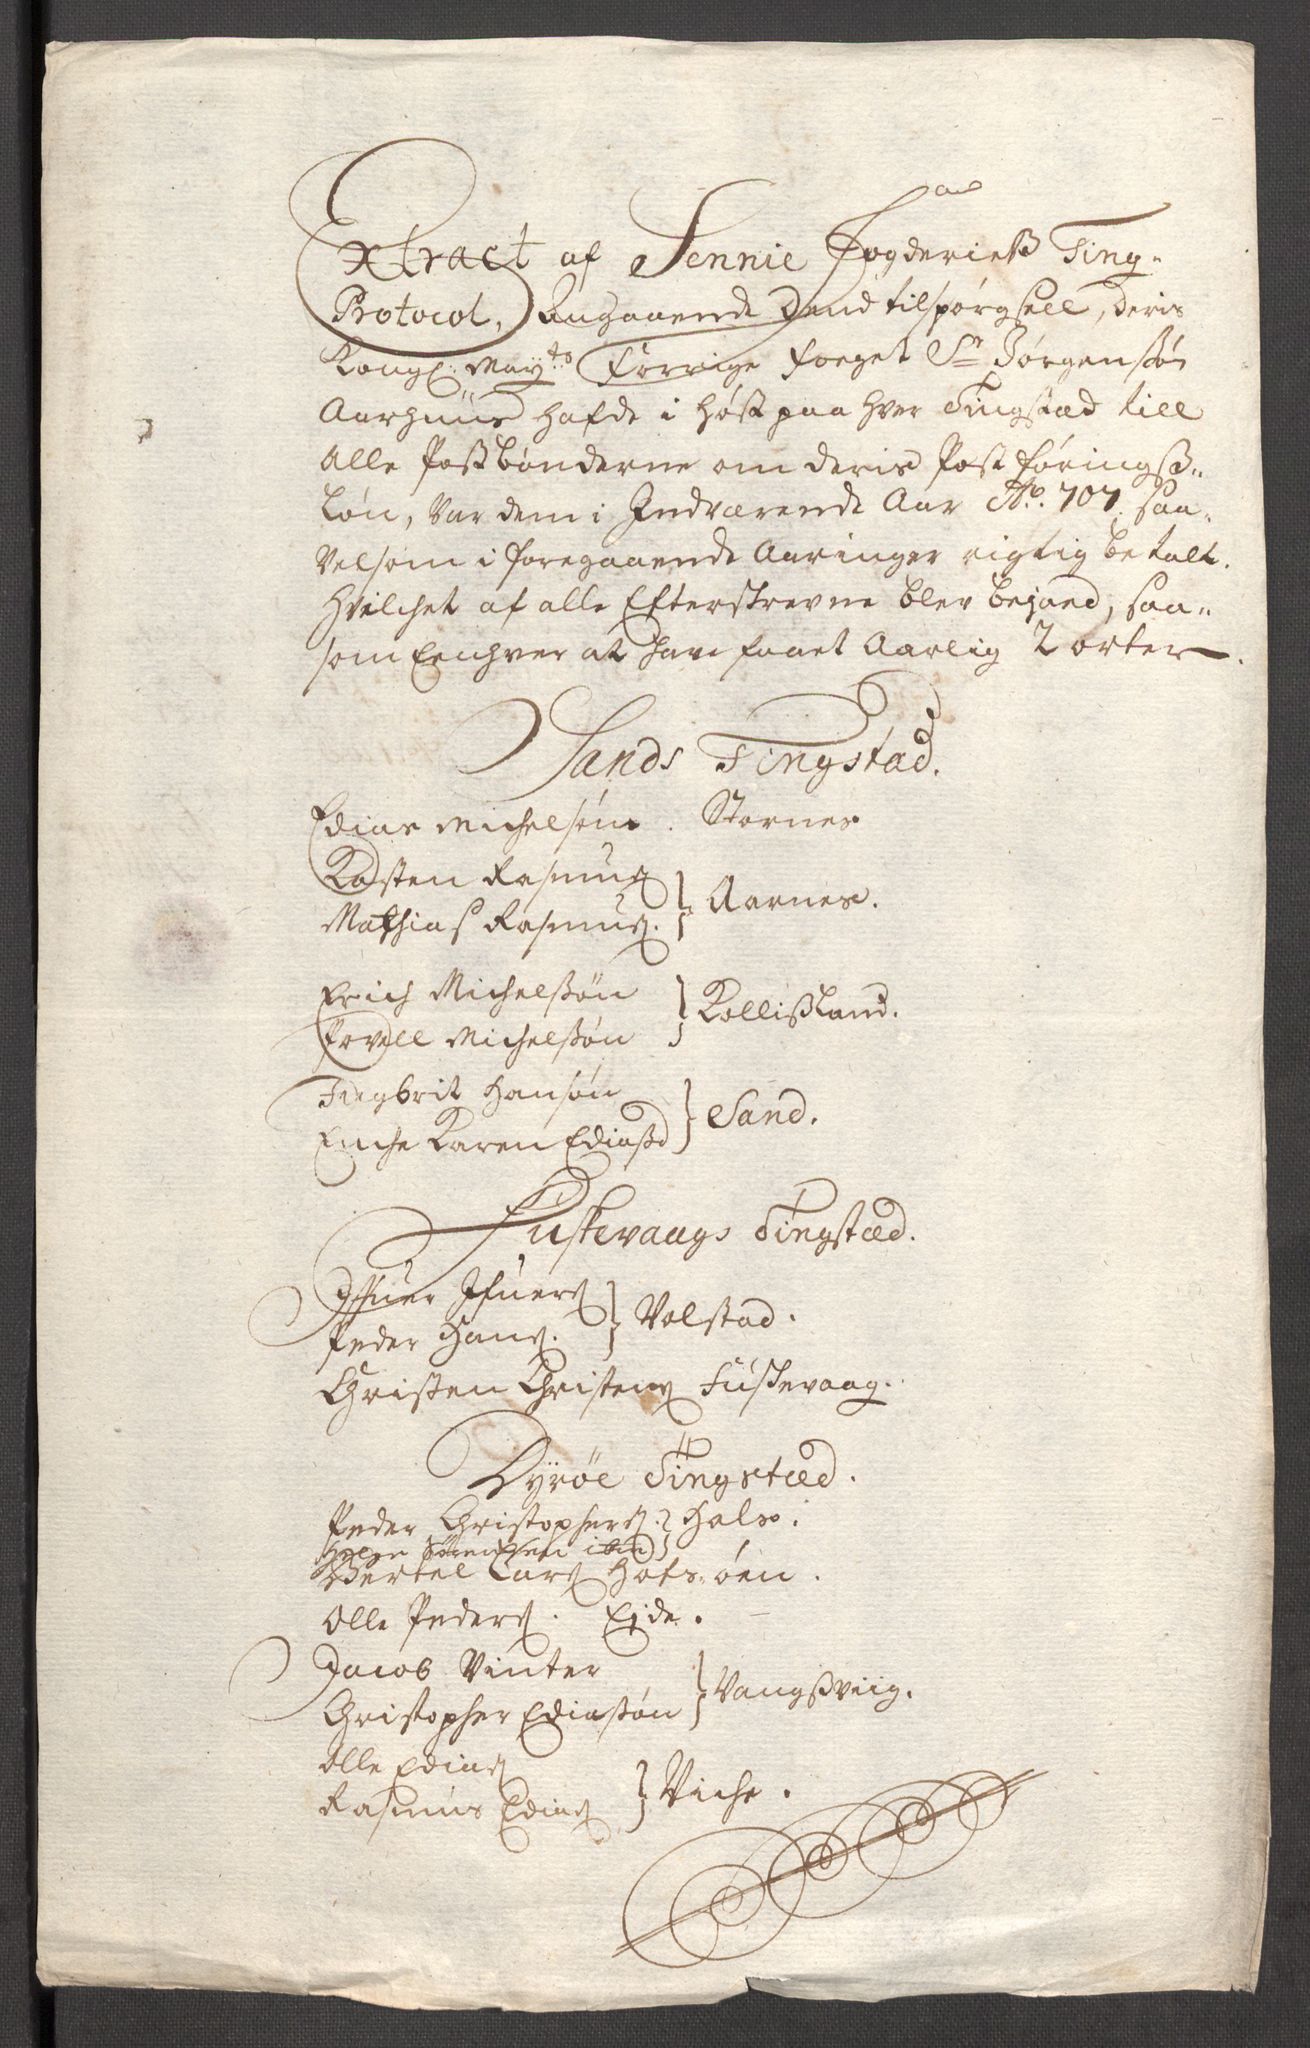 Extract af Sennie Fogderies Ting-
Protocol, Angaaende Dend tilspørgsell, deris
Kongl: May:ts Forrige foeget Sr Jørgen søn
Aarhuus hafde i høst paa hver Tingstæd till
Alle Postbønderne om deris Post føringsß-
Løn, var dem i Indværende Aar Ao. 707. saa-
velsom i foregaaende Aaringer rigtig betalt.
Hvilchet af alle Efterskrevne blev bejaed, saa-
som Eenhver at have faaet Aarlig 2 orter.
Sands Tingstad.
Edias Michelsøn. Stornes
Kasten Rasmuß
Mathias Rasmus. } Aarnes.
Erich Michelßøn
Povell Michelßøn } Kollißland.
Ingbrit Hansøn
Enche Karen Ediaßd } Sand.
Fuskevaags Tingstæd.
Ifuer Ifuers
Peder Hans. } Volstad.
Christen Christens Fuskevaag.
Dyrøe Tingstæd.
Peder Christophers. } Hals.
Helge Sørenßen ibid
Bertel Lars Hofs-øen.
Olle Peders. Eide.
Jacob Vinter
Christopher Ediaßøn } Vangßviig.
Olle Edias
Rasmus Edias } Viche.